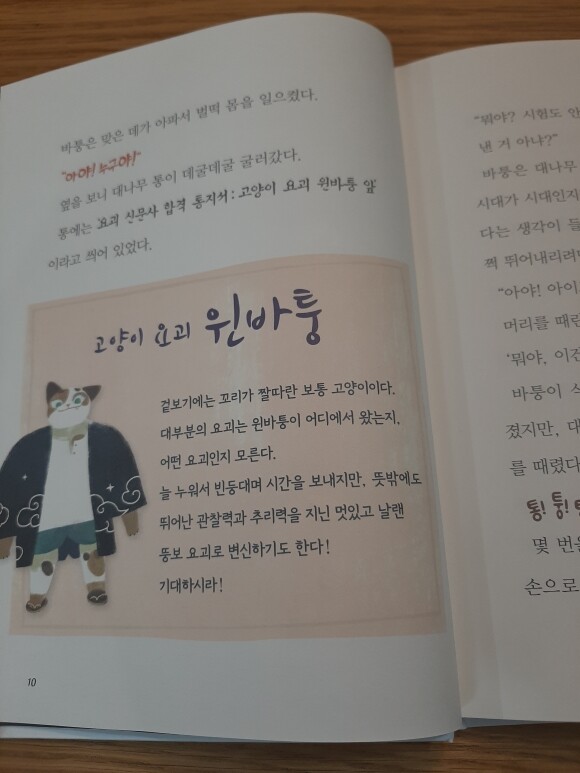 바퉁은 맞은 데가 아파서 벌떡 몸을 일으켰다.
"아야! 누구야!"
옆을 보니 대나무 통이 데굴데굴 굴러갔다.
통에는 요괴 신문사 합격 통지서: 고양이 요괴 윈바퉁 앞
이라고 씌어 있었다.
고양이 요괴 윈바퉁
겉보기에는 꼬리가 짤따란 보통 고양이이다.
대부분의 요괴는 윈바퉁이 어디에서 왔는지,
어떤 요괴인지 모른다.
늘 누워서 빈둥대며 시간을 보내지만, 뜻밖에도
뛰어난 관찰력과 추리력을 지닌 멋있고 날랜
뚱보 요괴로 변신하기도 한다!
기대하시라!
10
"뭐야? 시험도 안
낸 거 아냐?"
바퉁은 대나무
시대가 시대인지
다는 생각이 들
쩍 뛰어내리려
"아야! 아이
머리를 때린
'뭐야, 이건
바퉁이 
졌지만, 대
를 때렸다
통! 퉁!
몇 번을
손으로